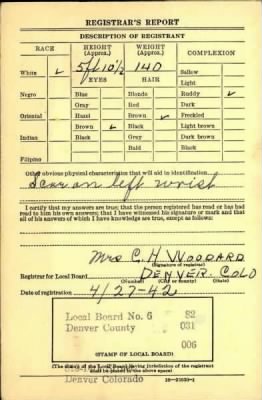 REGISTRAR'S REPORT
DESCRIPTION OF REGISTRANT
RACE HEIGHT (Approx.) WEIGHT (Approx.) COMPLEXION
White ✓ 5ft 10½ 140 Sallow
EYES HAIR Light
Negro Blue Blonde Ruddy ✓
Gray Red Dark
Oriental Hazel Brown Freckled
Brown ✓ Black Light brown
Indian Black Gray Dark brown
Bald Black
Filipino
Other obvious physical characteristics that will aid in identification
Scar on left wrist
I certify that my answers are true; that the person registered has read or has had
read to him his own answers; that I have witnessed his signature or mark and that
all of his answers of which I have knowledge are true, except as follows:
Mrs C. H WOODARD
(Signature of registrar)
Registrar for Local Board DENVER COLO
(Number) (City or county) (State)
Date of registration 4/27-42
Local Board No. 6 82
Denver County 031
006
(STAMP OF LOCAL BOARD)
(The stamp of the Local Board having jurisdiction of the registrant
shall be placed in the above space)
Denver Colorado